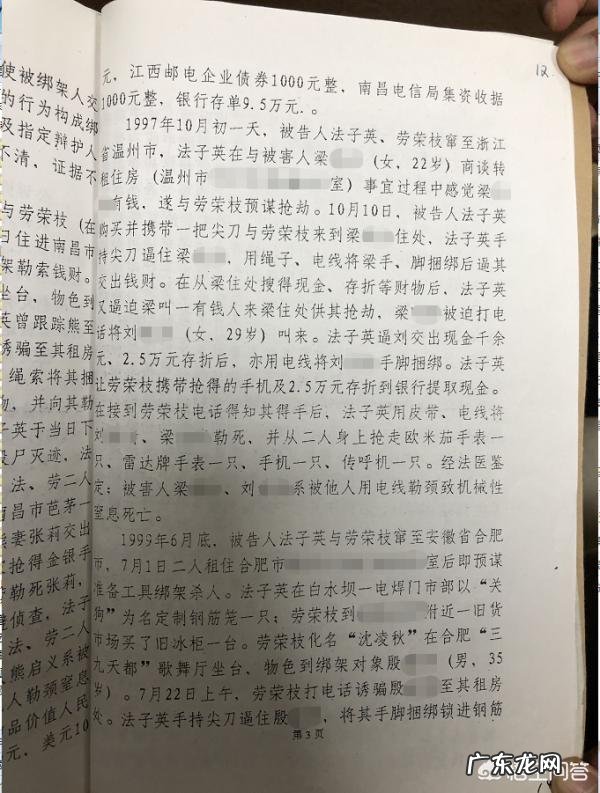 12
使被绑架人交
的行为构成绑
及指定辩护人
不清，证据不
与劳荣枝（在
日住进南昌市
架勒索钱财。
坐台，物色到
英曾跟踪熊至
诱骗至其租房
绳索将其捆
物，并向其勒
子英于当日下
尸灭迹，法
法、劳二人
南昌市芭茅一
妻张莉交出
抢得金银手
勒死张莉，
侦查，法子
法、劳二人
熊启义系被
人勒颈窒息
品价值人民
元、美元10
元，江西邮电企业债券1000元整，南昌电信局集资收据
1000元整，银行存单9.5万元.。
1997年10月初一天，被告人法子英、劳荣枝窜至浙江
省温州市，法子英在与被害人梁（女，22岁）商谈转
租住房（温州市室）事宜过程中感觉梁
有钱，遂与劳荣枝预谋抢劫。10月10日，被告人法子英
购买并携带一把尖刀与劳荣枝来到梁住处，法子英手
持尖刀逼住梁，用绳子、电线将梁手、脚捆绑后逼其
交出钱财。在从梁住处搜得现金、存折等财物后，法子英
又逼迫梁叫一有钱人来梁住处供其抢劫，梁被迫打电
话将刘（女，29岁）叫来。法子英逼刘交出现金千余
元、2.5万元存折后，亦用电线将刘手脚捆绑。法子英
让劳荣枝携带抢得的手机及2.5万元存折到银行提取现金。
在接到劳荣枝电话得知其得手后，法子英用皮带、电线将
刘、梁勒死，并从二人身上抢走欧米茄手表一
只、雷达牌手表一只、手机一只、传呼机一只。经法医鉴
定：被害人梁、刘系被他人用电线勒颈致机械性
窒息死亡。
1999年6月底，被告人法子英与劳荣枝窜至安徽省合肥
市，7月1日二人租住合肥市室后即预谋
准备工具绑架杀人。法子英在白水坝一电焊门市部以“关
狗”为名定制钢筋笼一只；劳荣枝到附近一旧货
市场买了旧冰柜一台。劳荣枝化名“沈凌秋”在合肥“三
九天都”歌舞厅坐台，物色到绑架对象殷（男，35
岁）。7月22日上午，劳荣枝打电话诱骗殷至其租房
处。法子英手持尖刀逼住殷，将其手脚捆绑锁进钢筋
第3页
广东龙网